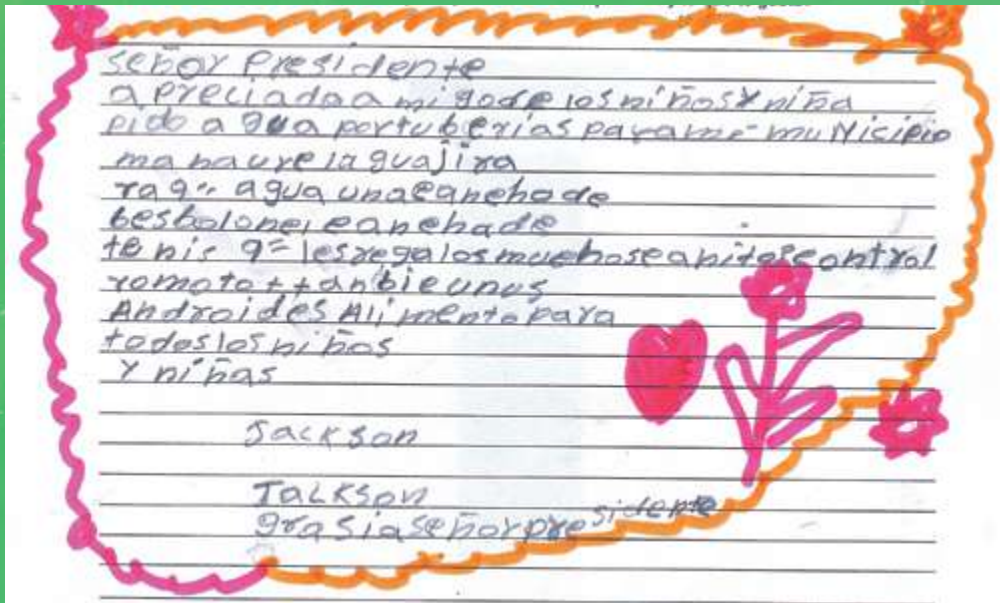 señor Presidente
apreciada amigode los niños y niña
pido agua portuberias parami municipio
manaure laguajira
agua unacanchade
besbolone, canchade
tenis q= lesregalosmuchoscanitoscontrol
romoto ttanbieunus
Androides Alimentopara
todoslosniños
y niñas
Jackson
Talkson
grasiaseñorpresidente